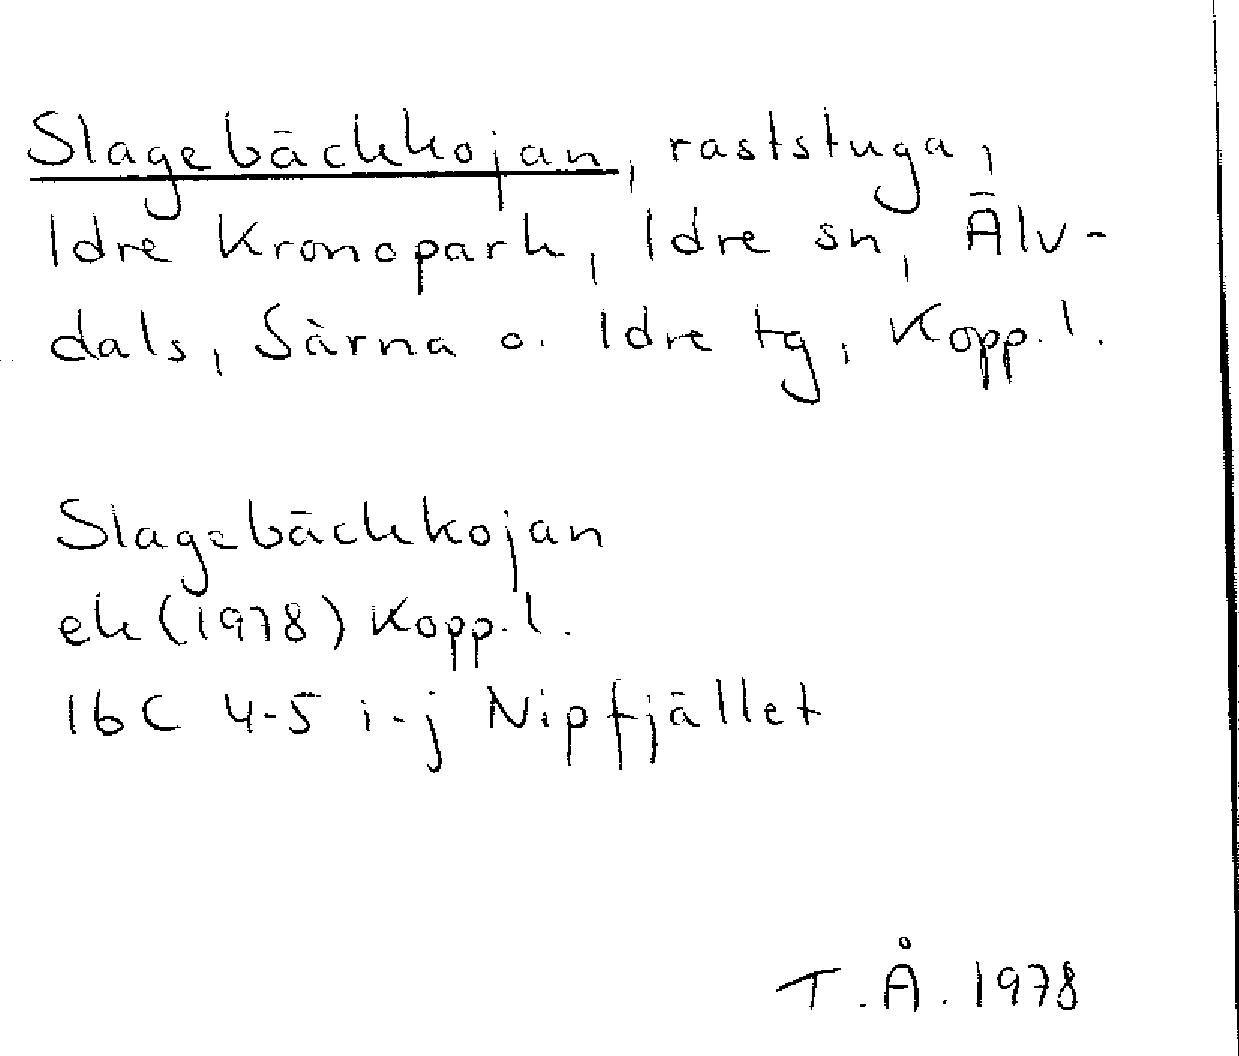 Slagebäckkojan, raststuga,
Idre Kronopark, Idre sn, Älv-
dals, Särna o. Idre tg, Kopp. l.
Slagebäckkojan
ek (1978) Kopp. l.
16C 4-5 i-j Nipfjället
T.Å. 1978